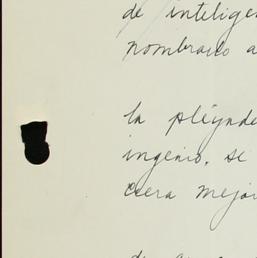 de intelige
nombrado a
la pléyade
ingenio, si
ciera mejor